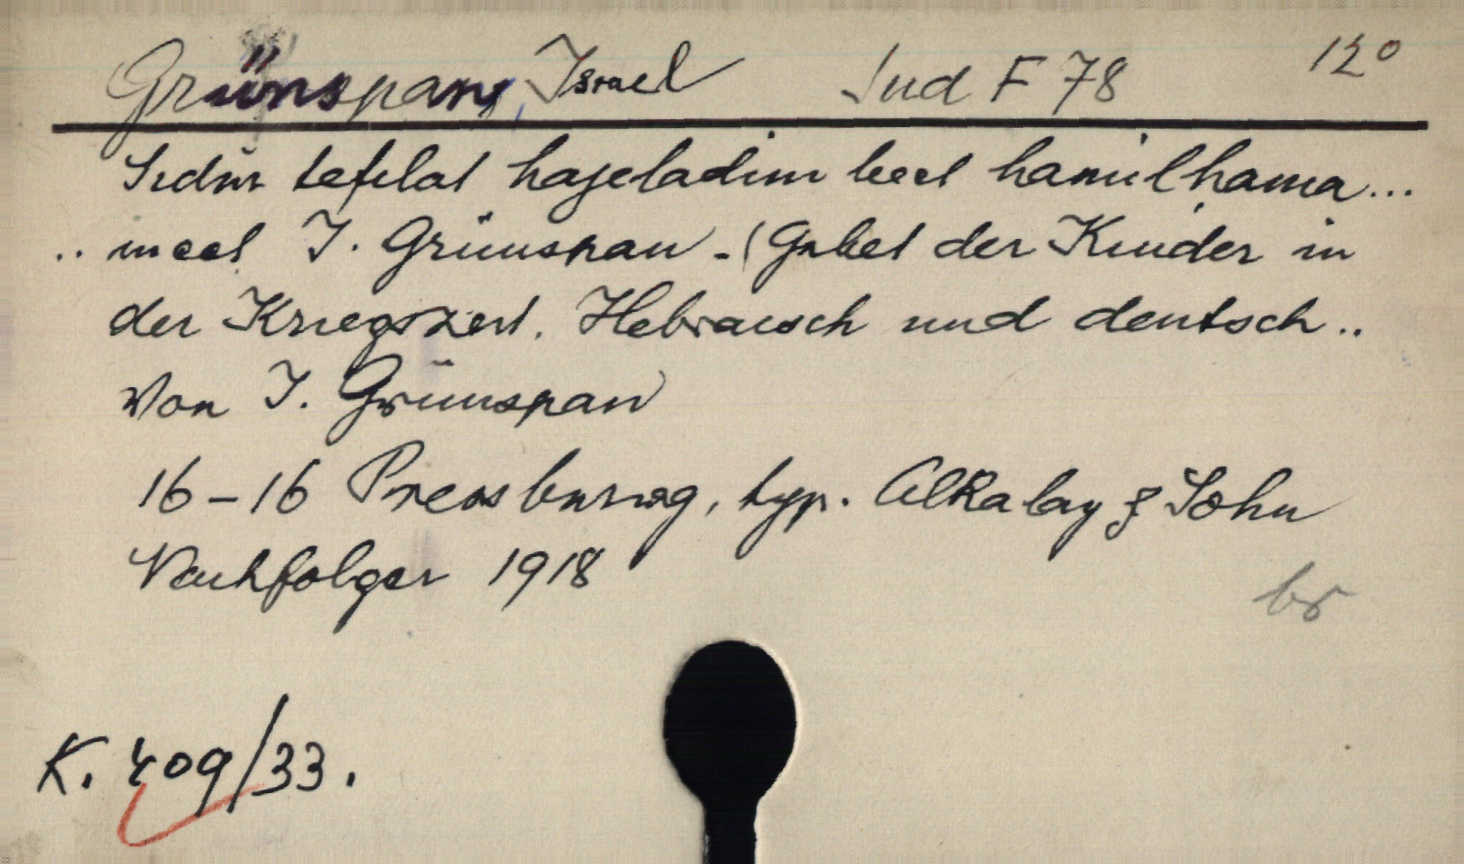 Grünspan, Israel Jud F 78 12°
Sidur tefilat hajeladim beet hamilhama...
.. meet I. Grünspan - (Gebet der Kinder in
der Kriegszeit. Hebraisch und deutsch..
Von I. Grünspan
16-16 Pressburg, typ. Alkalay & Sohn
Nachfolger 1918
br
K. 409/33.